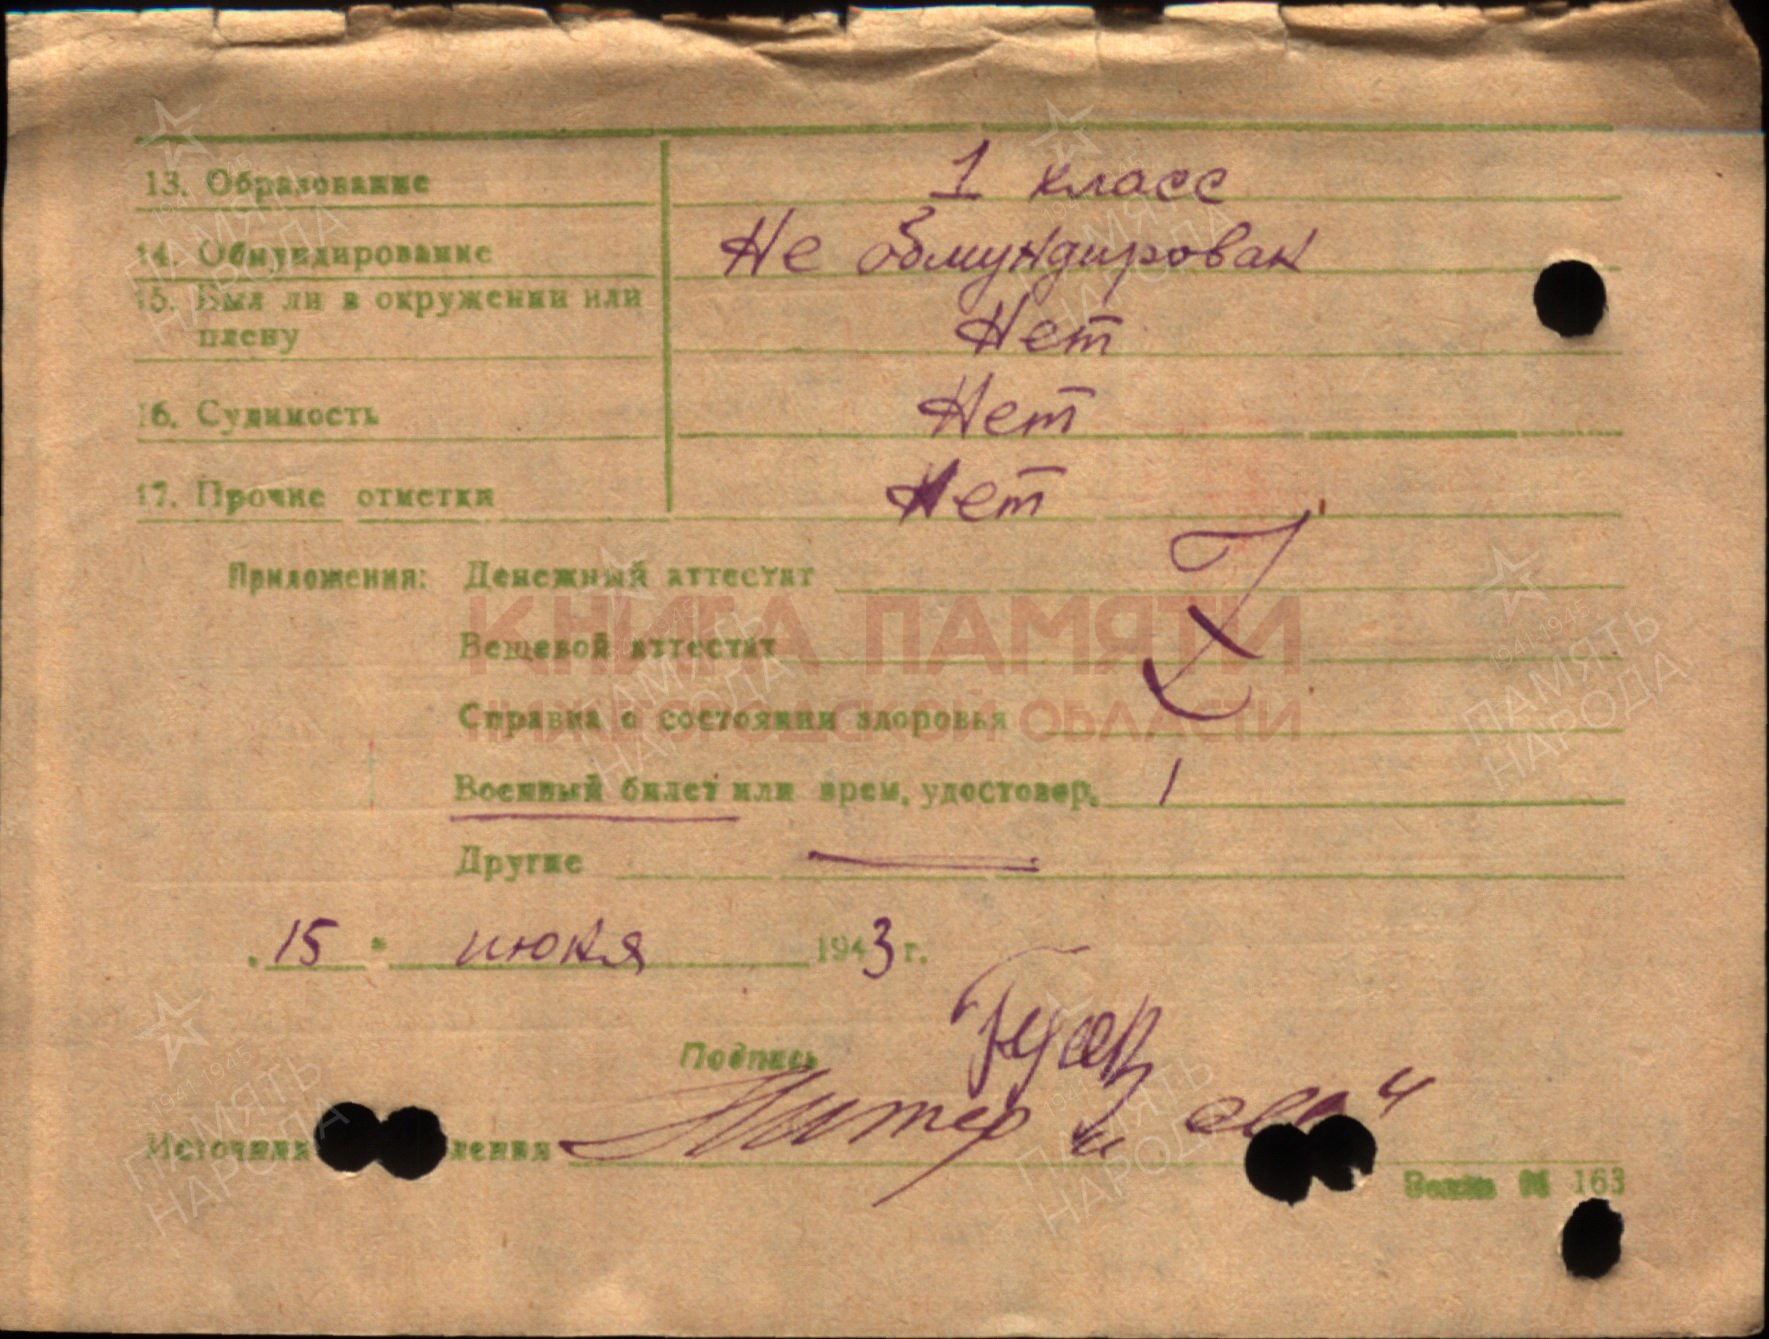 13. Образование 1 класс
14. Обмундирование Не обмундирован
15. Был ли в окружении или
плену Нет
16. Судимость Нет
17. Прочие отметки Нет
Приложения: Денежный аттестат
КНИГА ПАМЯТИ
Вещевой аттестат
НИЖЕГОРОДСКОЙ ОБЛАСТИ
Справка о состоянии здоровья
Военный билет или врем. удостовер. 1
Другие
"15" июня 1943 г.
Подпись
Источник
1941-1945
ПАМЯТЬ
НАРОДА
163